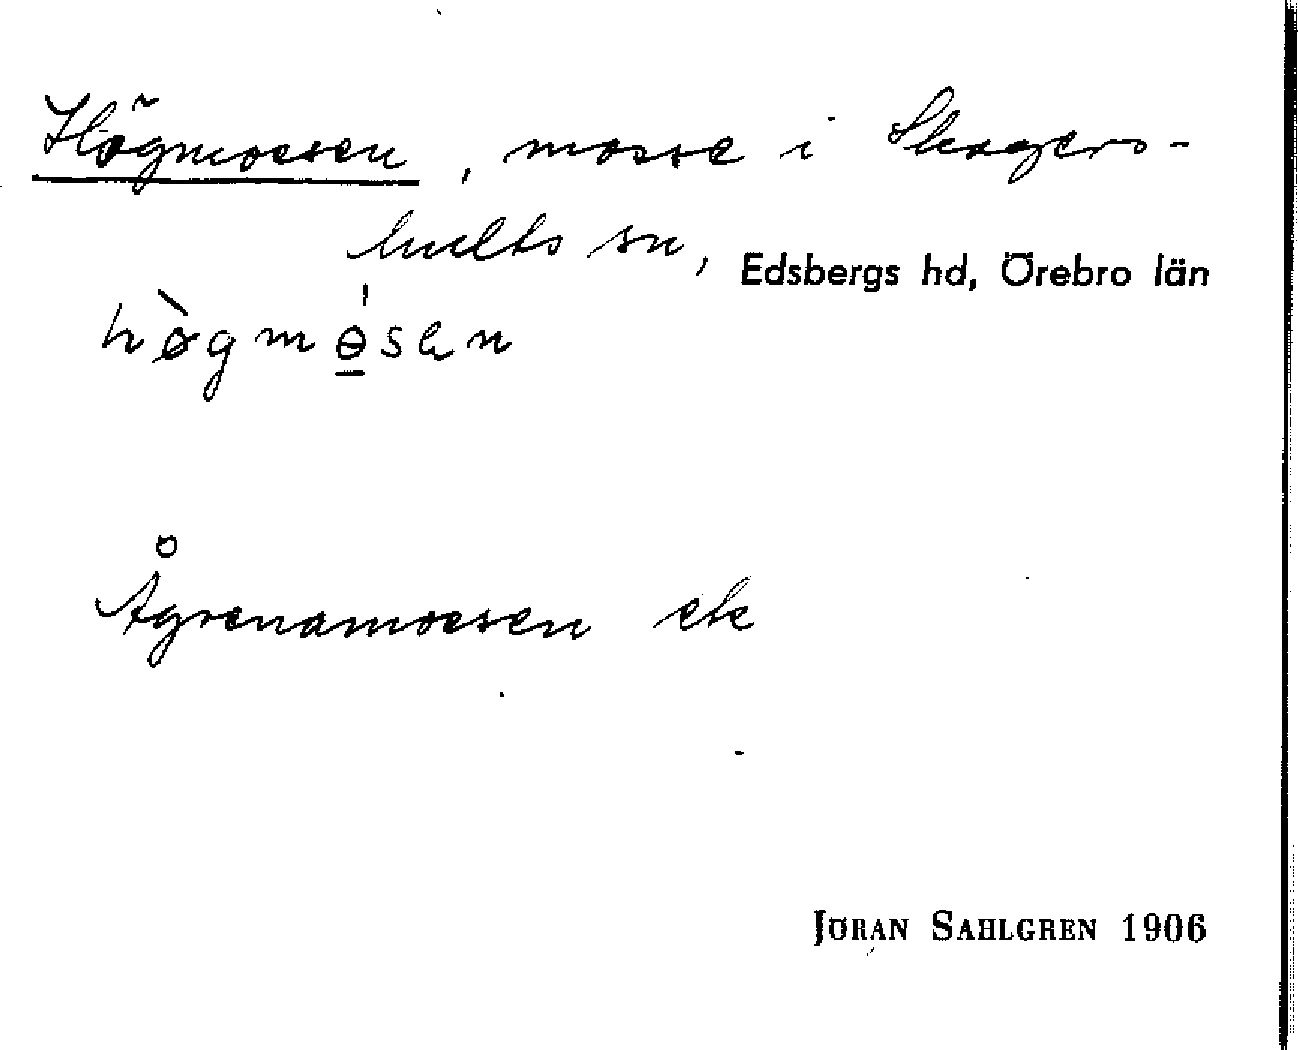 Högmossen, mosse i Skagers-
hults sn, Edsbergs hd, Örebro län
hø̀gmө̲́sen
Ågrenamossen ek
JÖRAN SAHLGREN 1906